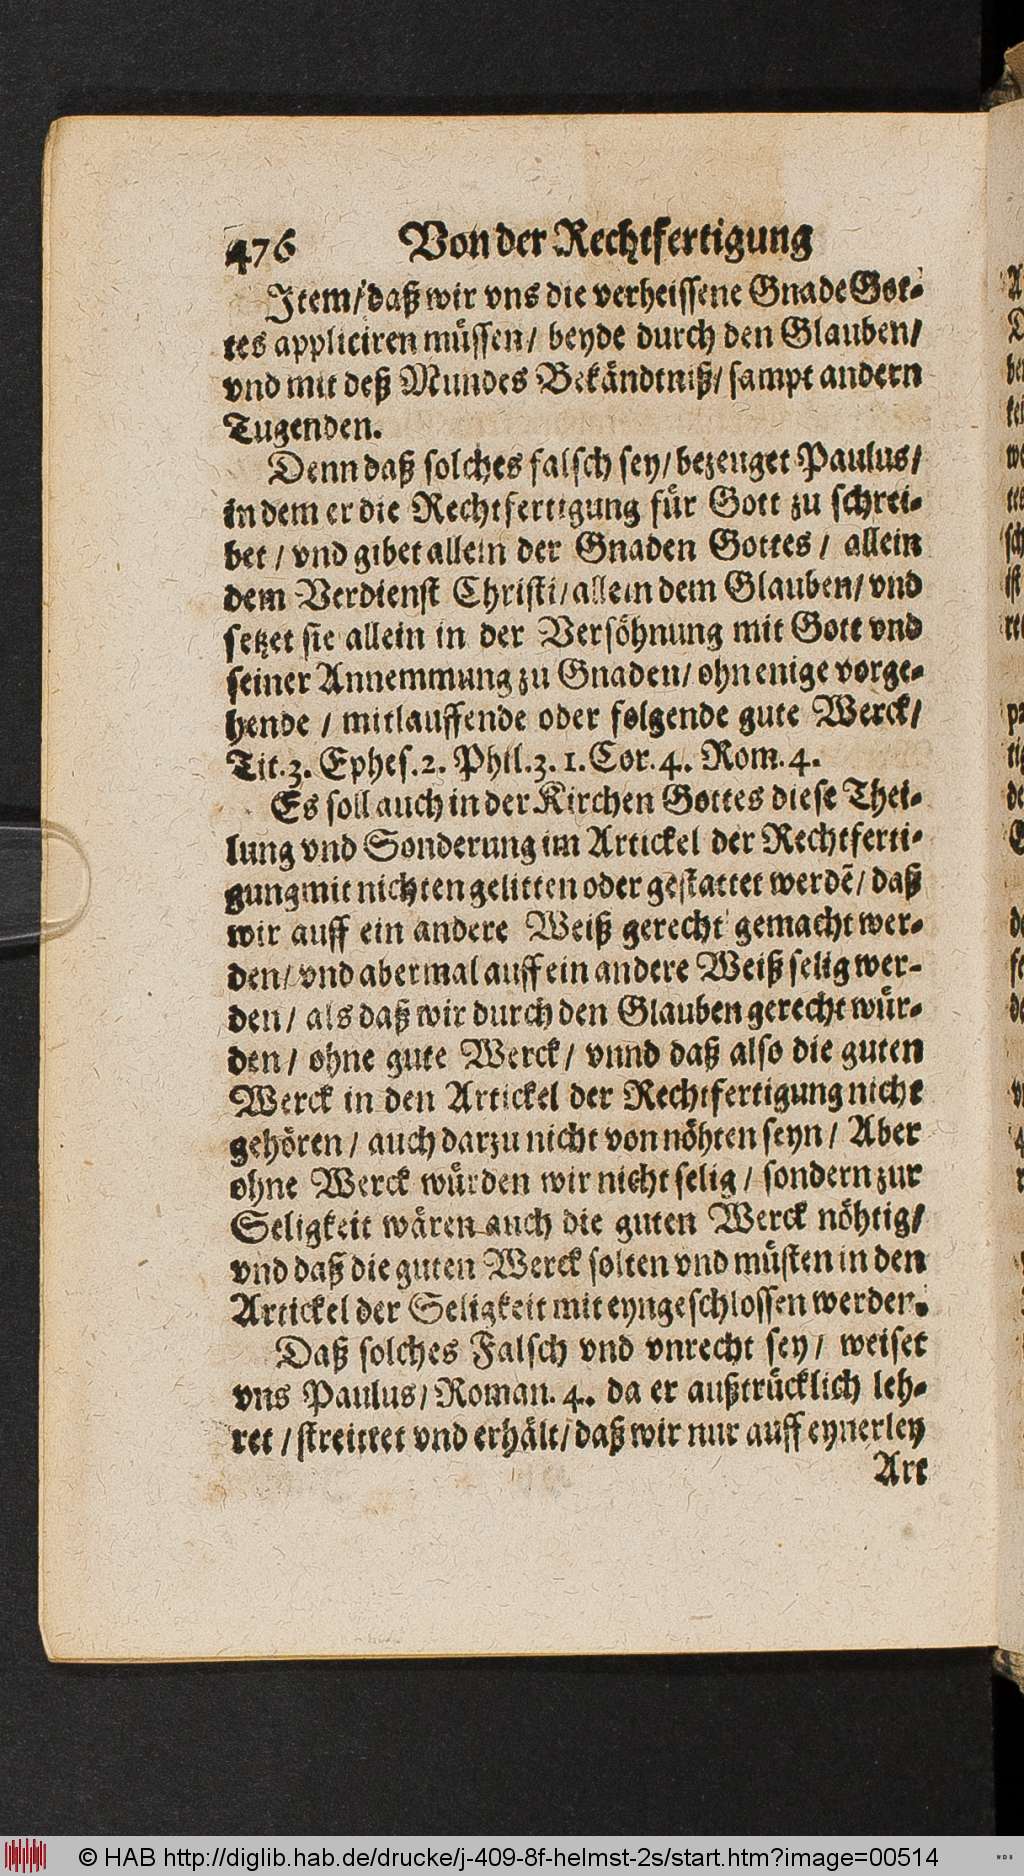 476 Von der Rechtfertigung
Item/ daß wir vns die verheissene Gnade Got-
tes appliciren müssen/ beyde durch den Glauben/
vnd mit deß Mundes Bekändtniß/ sampt andern
Tugenden.
Denn daß solches falsch sey/ bezeuget Paulus/
in dem er die Rechtfertigung für Gott zu schrei-
bet / vnd gibet allein der Gnaden Gottes / allein
dem Verdienst Christi/ allein dem Glauben/ vnd
setzet sie allein in der Versöhnung mit Gott vnd
seiner Annemmung zu Gnaden/ ohn enige vorge-
hende / mitlauffende oder folgende gute Werck/
Tit. 3. Ephes. 2. Phil. 3. 1. Cor. 4. Rom. 4.
Es soll auch in der Kirchen Gottes diese Thei-
lung vnd Sonderung im Artickel der Rechtferti-
gung mit nichten gelitten oder gestattet werdē/ daß
wir auff ein andere Weiß gerecht gemacht wer-
den/ vnd abermal auff ein andere Weiß selig wer-
den/ als daß wir durch den Glauben gerecht wür-
den/ ohne gute Werck/ vnnd daß also die guten
Werck in den Artickel der Rechtfertigung nicht
gehören / auch darzu nicht von nöhten seyn / Aber
ohne Werck würden wir nicht selig / sondern zur
Seligkeit wären auch die guten Werck nöhtig/
vnd daß die guten Werck solten vnd müsten in den
Artickel der Seligkeit mit eyngeschlossen werden.
Daß solches Falsch vnd vnrecht sey / weiset
vns Paulus/ Roman. 4. da er außtrücklich leh-
ret / streittet vnd erhält/ daß wir nur auff eynerley
Art
© HAB http://diglib.hab.de/drucke/j-409-8f-helmst-2s/start.htm?image=00514